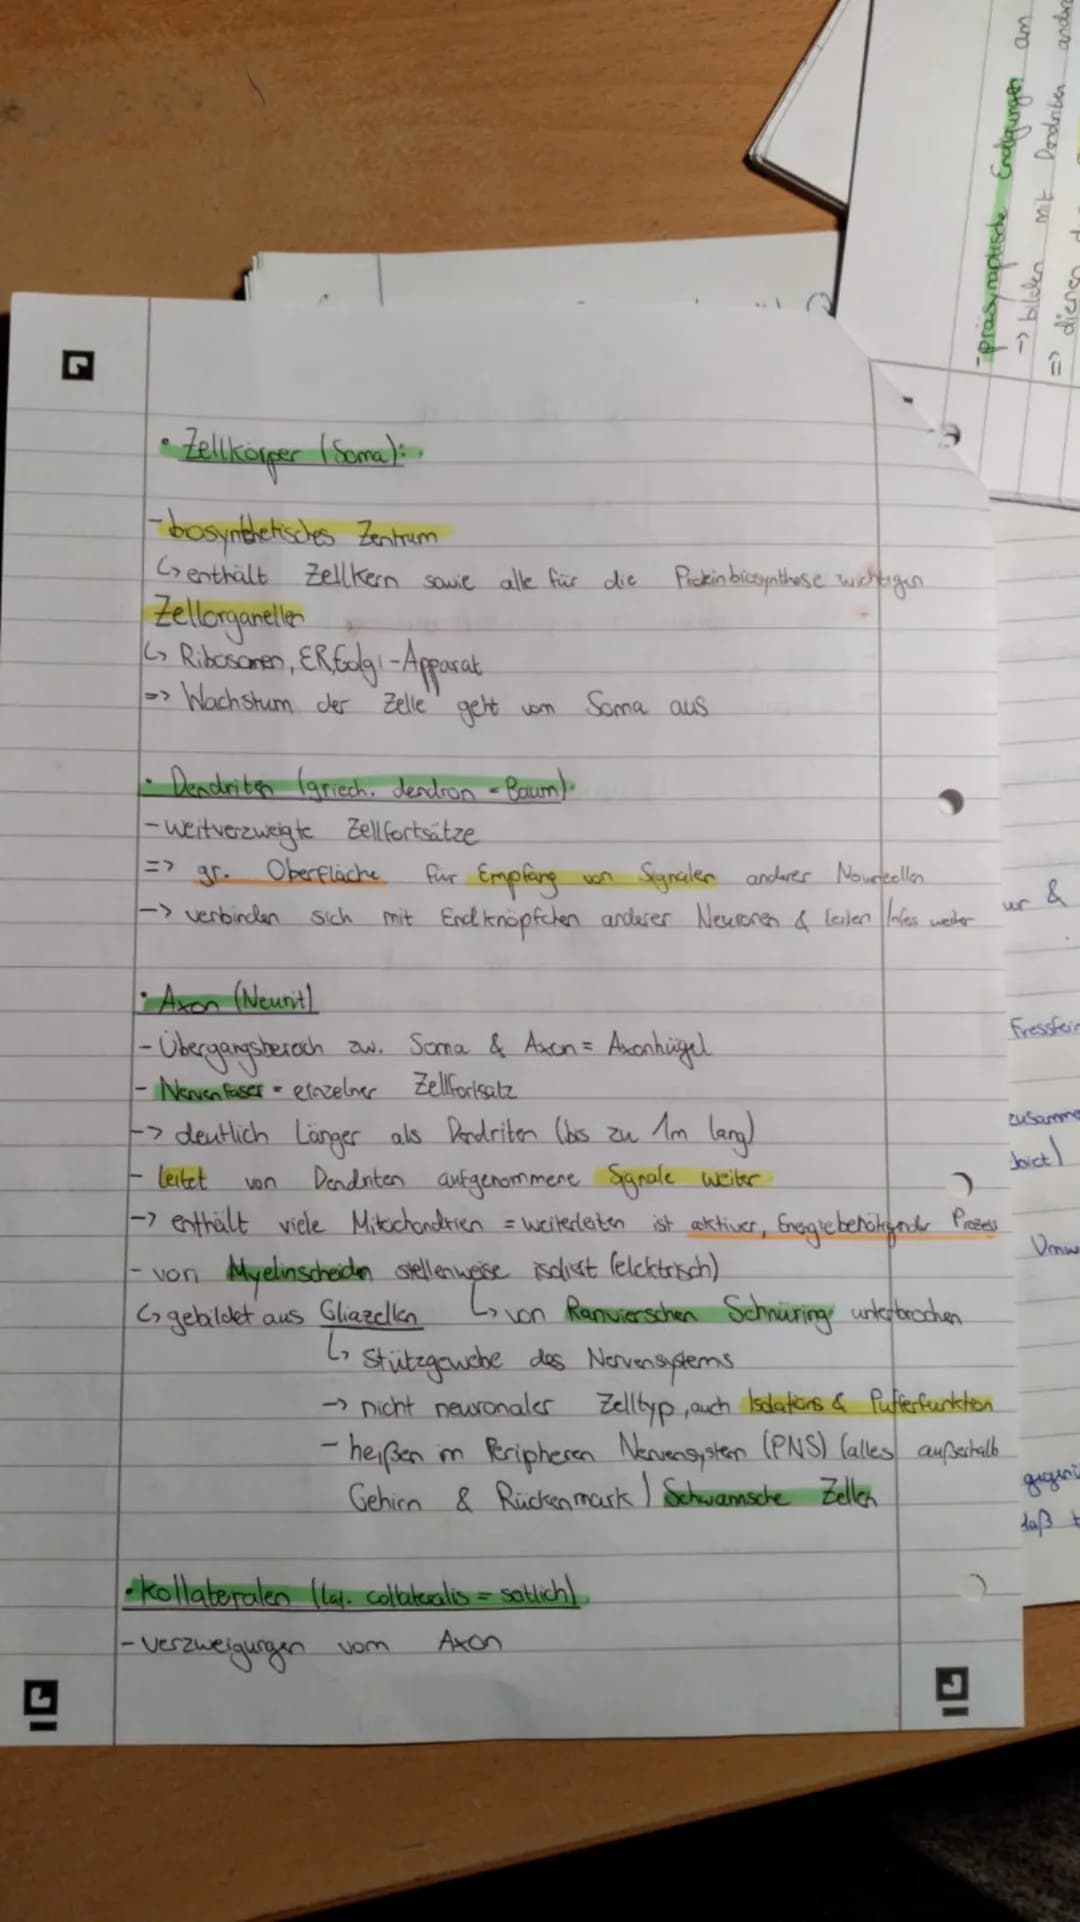 • Zellkörper (Soma):
- biosynthetisches Zentrum
↳ enthält Zellkern sowie alle für die Proteinbiosynthese wichtigen
Zellorganellen
↳ Ribosomen, ER, Golgi-Apparat
=> Wachstum der Zelle geht vom Soma aus
• Dendriten (griech. dendron = Baum):
- weitverzweigte Zellfortsätze
=> gr. Oberfläche für Empfang von Signalen anderer Nervenzellen
-> verbinden sich mit Endknöpfchen anderer Neuronen & leiten Infos weiter
• Axon (Neurit)
- Übergangsbereich zw. Soma & Axon = Axonhügel
- Nervenfaser = einzelner Zellfortsatz
-> deutlich Länger als Dendriten (bis zu 1m lang)
- leitet von Dendriten aufgenommene Signale weiter
-> enthält viele Mitochondrien = weiterleiten ist aktiver, Energiebenötigender Prozess
- von Myelinscheiden stellenweise isoliert (elektrisch)
↳ gebildet aus Gliazellen ↳ von Ranvierschen Schnüring unterbrochen
↳ Stützgewebe des Nervensystems
-> nicht neuronaler Zelltyp, auch Isolations & Pufferfunktion
- heißen im Peripheren Nervensystem (PNS) (alles außerhalb
Gehirn & Rückenmark) Schwannsche Zellen
• Kollateralen (lat. collateralis = seitlich)
- verzweigungen vom Axon
- präsynaptische Endigungen am
-> bilden mit Dendriten
=> dienen
&
zusamme
gegen
daß